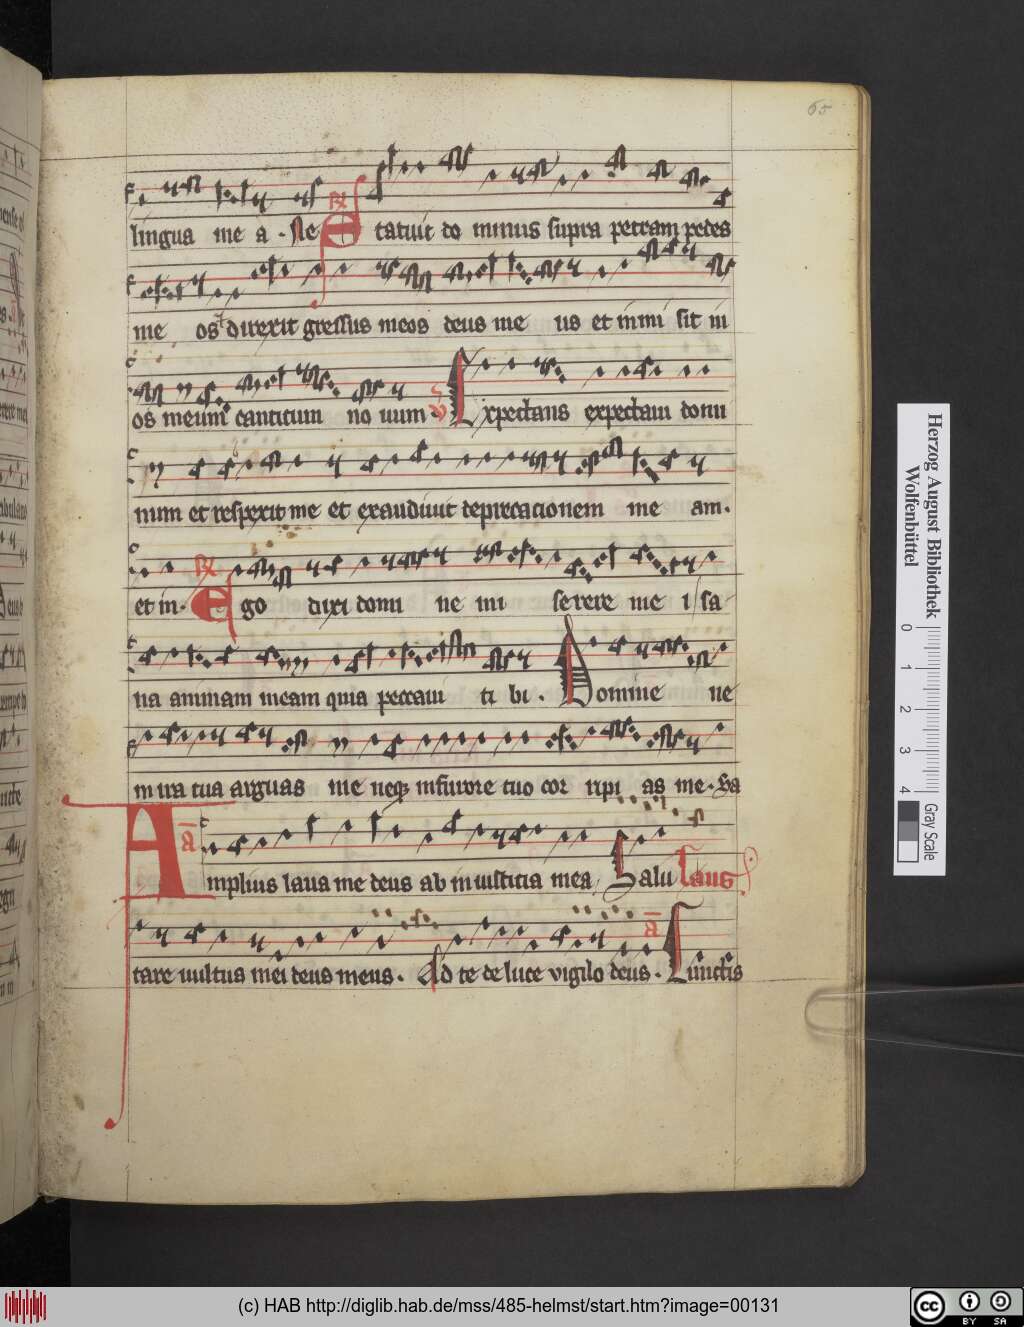 65
lingua me a . Ne ℟ Statuit do minus supra petram pedes
me os et direxit gressus meos deus me us et in mi sit in
os meum canticum no uum ℣ Expectans expectaui domi
num et respexit me et exaudiuit deprecationem me am.
et in. ℟ Ego dixi domi ne mi serere me i sa
na animam meam quia peccaui ti bi . Domine ne
in ira tua arguas me neq in furore tuo cor ripi as me.
A Amplius laua me deus ab iniusticia mea Salu laus
tare uultus mei deus meus . Ad te de luce vigilo deus . a Cunctis
Herzog August Bibliothek
Wolfenbüttel
0 1 2 3 4
Gray Scale
(c) HAB http://diglib.hab.de/mss/485-helmst/start.htm?image=00131
cc BY SA